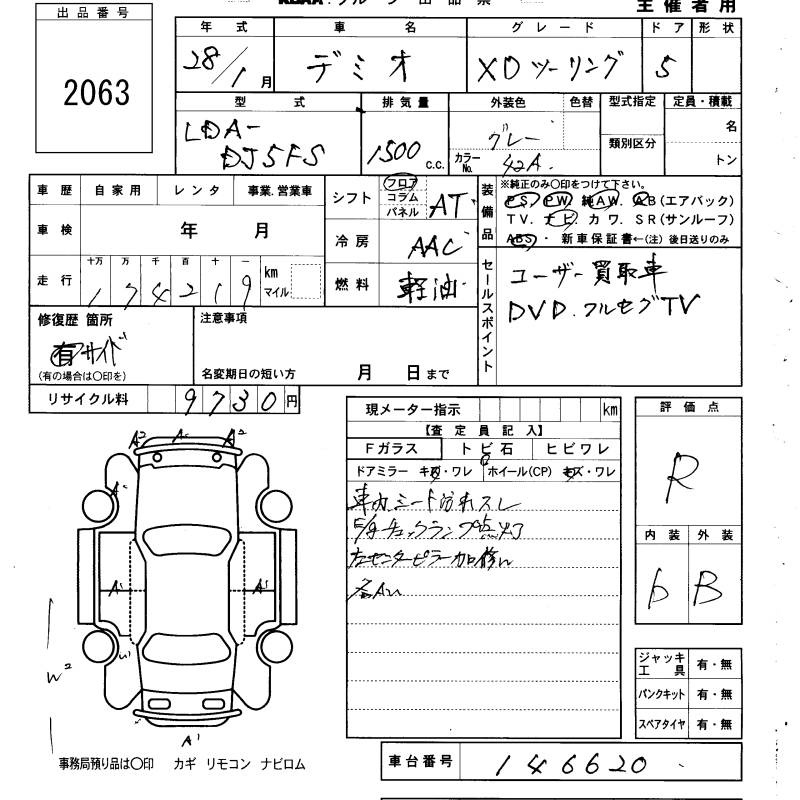 出品番号
2063
主催者用
年式 車名 グレード ドア 形状
28/1月 デミオ XDツーリング 5
型式 排気量 外装色 色替 型式指定 定員・積載
LDA-
DJ5FS
1500 c.c.
グレー
カラーNo. 42A
類別区分
名
トン
車歴 自家用 レンタ 事業.営業車
車検 年 月
走行 十万 万 千 百 十 一
174219 km
マイル
シフト フロア コラム パネル AT
冷房 AAC
燃料 軽油
装備品
※純正のみ〇印をつけて下さい。
PS. PW. 純AW. AB(エアバック)
TV. ナビ. カワ. SR(サンルーフ)
ABS ・ 新車保証書←(注) 後日送りのみ
セールスポイント
ユーザー買取車
DVD.フルセグTV
修復歴 箇所
有 サイド
(有の場合は〇印を)
注意事項
名変期日の短い方 月 日まで
リサイクル料 9730円
現メーター指示 km
【査定員記入】
Fガラス トビ石 ヒビワレ
ドアミラー キズ・ワレ ホイール(CP) キズ・ワレ
車内シート汚れスレ
チェックランプ点灯
左センターピラー加修
評価点
R
内装 外装
6 B
A2 A2
A1
A1 A1
W2
A1
ジャッキ
工具 有・無
パンクキット 有・無
スペアタイヤ 有・無
事務局預り品は〇印 カギ リモコン ナビロム
車台番号 146620